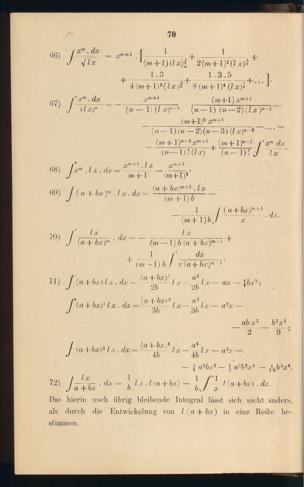 70
66) ∫ x^m . dx / √(lx) = x^(m+1) . [ 1 / ((m+1)(lx)^(1/2)) + 1 / (2(m+1)²(lx)^(3/2)) +
+ 1.3 / (4(m+1)³(lx)^(5/2)) + 1.3.5 / (8(m+1)⁴(lx)^(7/2)) + ... ].
67) ∫ x^m . dx / (lx)^n = − x^(m+1) / ((n−1)(lx)^(n−1)) − (m+1)x^(m+1) / ((n−1)(n−2)(lx)^(n−2)) −
− (m+1)² x^(m+1) / ((n−1)(n−2)(n−3)(lx)^(n−3)) .... −
− (m+1)^(n−2) x^(m+1) / ((n−1)!(lx)) + (m+1)^(n−1) / (n−1)! ∫ x^m dx / lx .
68) ∫ x^m . lx . dx = x^(m+1) . lx / (m+1) − x^(m+1) / (m+1)² .
69) ∫ (a+bx)^m . lx . dx = (a+bx)^(m+1) . lx / ((m+1)b) −
− 1 / ((m+1)b) ∫ (a+bx)^(m+1) / x . dx.
70) ∫ lx / (a+bx)^m . dx = − lx / ((m−1)b(a+bx)^(m−1)) +
+ 1 / ((m−1)b) ∫ dx / (x(a+bx)^(m−1)) .
71) ∫ (a+bx) lx . dx = (a+bx)² / 2b lx − a² / 2b lx − ax − ¼bx²;
∫ (a+bx)² lx . dx = (a+bx)³ / 3b lx − a³ / 3b lx − a²x −
− abx² / 2 − b²x³ / 9 ;
∫ (a+bx)³ lx . dx = (a+bx)⁴ / 4b lx − a⁴ / 4b lx − a³x −
− ¾ a²bx² − ⅓ ab²x³ − 1/16 b³x⁴.
72) ∫ lx / (a+bx) . dx = 1/b lx . l(a+bx) − 1/b ∫ 1/x l(a+bx) . dx.
Das hierin noch übrig bleibende Integral lässt sich nicht anders,
als durch die Entwickelung von l(a+bx) in eine Reihe be-
stimmen.